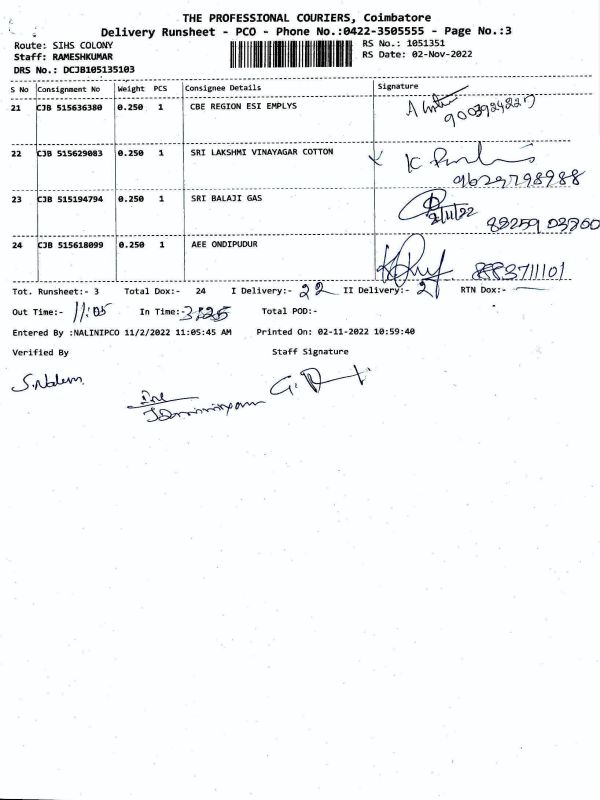 THE PROFESSIONAL COURIERS, Coimbatore
Delivery Runsheet - PCO - Phone No.:0422-3505555 - Page No.:3
Route: SIHS COLONY RS No.: 1051351
Staff: RAMESHKUMAR RS Date: 02-Nov-2022
DRS No.: DCJB105135103
S No Consignment No Weight PCS Consignee Details Signature
21 CJB 515636380 0.250 1 CBE REGION ESI EMPLYS
22 CJB 515629083 0.250 1 SRI LAKSHMI VINAYAGAR COTTON
9629798988
23 CJB 515194794 0.250 1 SRI BALAJI GAS
2/11/22
24 CJB 515618099 0.250 1 AEE ONDIPUDUR
Tot. Runsheet:- 3 Total Dox:- 24 I Delivery:- 22 II Delivery:- 2 RTN Dox:-
Out Time:- 11:05 In Time:- Total POD:-
Entered By :NALINIPCO 11/2/2022 11:05:45 AM Printed On: 02-11-2022 10:59:40
Verified By Staff Signature